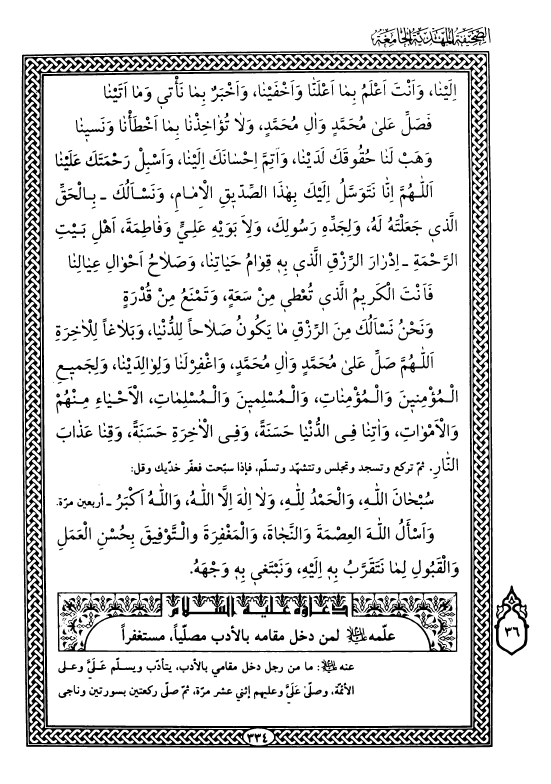 الصّحيفة المهديّة الجامعة
اِلَيْنا، وَاَنْتَ اَعْلَمُ بِما اَعْلَنَّا وَاَخْفَيْنا، وَاَخْبَرُ بِما نَأْتي وَما اَتَيْنا
فَصَلِّ عَلى مُحَمَّدٍ وَآلِ مُحَمَّدٍ، وَلا تُؤاخِذْنا بِما اَخْطَأْنا وَنَسينا
وَهَبْ لَنا حُقُوقَكَ لَدَيْنا، وَاَتِمَّ اِحْسانَكَ اِلَيْنا، وَاَسْبِلْ رَحْمَتَكَ عَلَيْنا
اَللّٰهُمَّ اِنَّا نَتَوَسَّلُ اِلَيْكَ بِهٰذَا الصِّدّيقِ الْاِمامِ، وَنَسْأَلُكَ ـ بِالْحَقِّ
الَّذي جَعَلْتَهُ لَهُ، وَلِجَدِّهِ رَسُولِكَ، وَلِاَبَوَيْهِ عَلِيٍّ وَفاطِمَةَ، اَهْلِ بَيْتِ
الرَّحْمَةِ ـ اِدْرارَ الرِّزْقِ الَّذي بِهِ قِوامُ حَياتِنا، وَصَلاحُ اَحْوالِ عِيالِنا
فَاَنْتَ الْكَريمُ الَّذي تُعْطي مِنْ سَعَةٍ، وَتَمْنَعُ مِنْ قُدْرَةٍ
وَنَحْنُ نَسْأَلُكَ مِنَ الرِّزْقِ ما يَكُونُ صَلاحاً لِلدُّنْيا، وَبَلاغاً لِلْآخِرَةِ
اَللّٰهُمَّ صَلِّ عَلى مُحَمَّدٍ وَآلِ مُحَمَّدٍ، وَاغْفِرْ لَنا وَلِوالِدَيْنا، وَلِجَميعِ
الْمُؤْمِنينَ وَالْمُؤْمِناتِ، وَالْمُسْلِمينَ وَالْمُسْلِماتِ، الْاَحْياءِ مِنْهُمْ
وَالْاَمْواتِ، وَآتِنا فِي الدُّنْيا حَسَنَةً، وَفِي الْآخِرَةِ حَسَنَةً، وَقِنا عَذابَ
النَّارِ. ثمّ تركع وتسجد وتجلس وتتشهّد وتسلّم، فإذا سبّحت فعفّر خدّيك وقل:
سُبْحانَ اللهِ، وَالْحَمْدُ لِلّٰهِ، وَلا اِلٰهَ اِلَّا اللهُ، وَاللهُ اَكْبَرُ ـ أربعين مرّة.
وَاَسْأَلُ اللهَ الْعِصْمَةَ وَالنَّجاةَ، وَالْمَغْفِرَةَ وَالتَّوْفيقَ بِحُسْنِ الْعَمَلِ
وَالْقَبُولِ لِما نَتَقَرَّبُ بِهِ اِلَيْهِ، وَنَبْتَغي بِهِ وَجْهَهُ.
دعاؤه عليه السّلام
علّمه لمن دخل مقامه بالأدب مصلّياً، مستغفراً
٣٦
عنه: ما من رجل دخل مقامي بالأدب، يتأدّب ويسلّم عَلَيَّ وعلى
الأئمّة، وصلّى عَلَيَّ وعليهم إثني عشر مرّة، ثمّ صلّى ركعتين بسورتين وناجى
٣٣٤